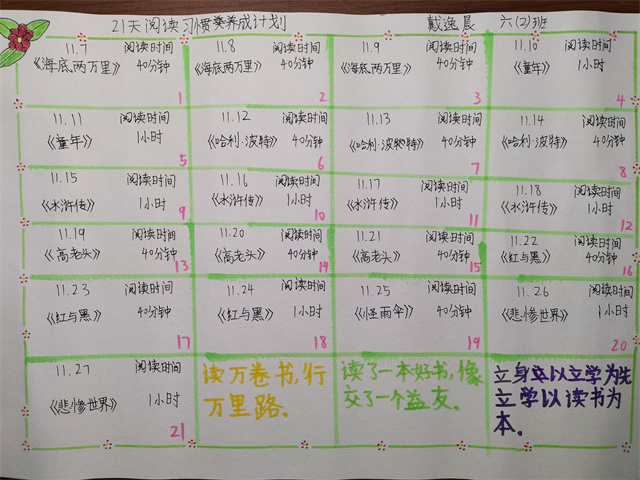 21天阅读习惯养成计划 戴逸晨 六(2)班
11.7 阅读时间
《海底两万里》 40分钟
1
11.8 阅读时间
《海底两万里》 40分钟
2
11.9 阅读时间
《海底两万里》 40分钟
3
11.10 阅读时间
《童年》 1小时
4
11.11 阅读时间
《童年》 1小时
5
11.12 阅读时间
《哈利·波特》 40分钟
6
11.13 阅读时间
《哈利·波特》 40分钟
7
11.14 阅读时间
《哈利·波特》 40分钟
8
11.15 阅读时间
《水浒传》 1小时
9
11.16 阅读时间
《水浒传》 1小时
10
11.17 阅读时间
《水浒传》 1小时
11
11.18 阅读时间
《水浒传》 1小时
12
11.19 阅读时间
《高老头》 40分钟
13
11.20 阅读时间
《高老头》 40分钟
14
11.21 阅读时间
《高老头》 40分钟
15
11.22 阅读时间
《红与黑》 40分钟
16
11.23 阅读时间
《红与黑》 40分钟
17
11.24 阅读时间
《红与黑》 1小时
18
11.25 阅读时间
《怪雨伞》 40分钟
19
11.26 阅读时间
《悲惨世界》 1小时
20
11.27 阅读时间
《悲惨世界》 1小时
21
读万卷书,行
万里路.
读了一本好书,像
交了一个益友.
立身以立学为先
立学以读书为
本.